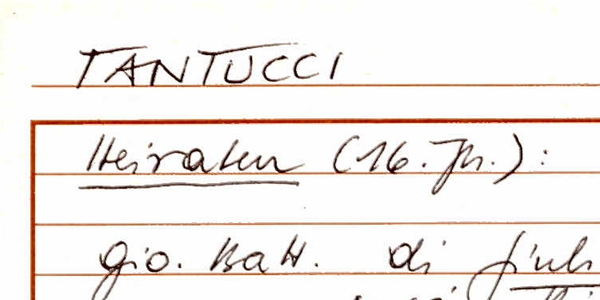 TANTUCCI
Heiraten (16. Jh.):
Gio. Batt. di